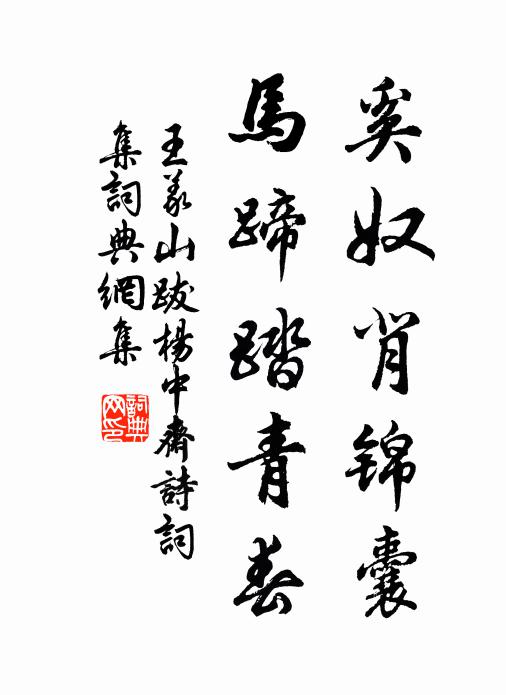 奚奴肖锦囊
馬蹄踏青春
王義山跋楊中齋詩詞
集詞典網集
詞典
网印